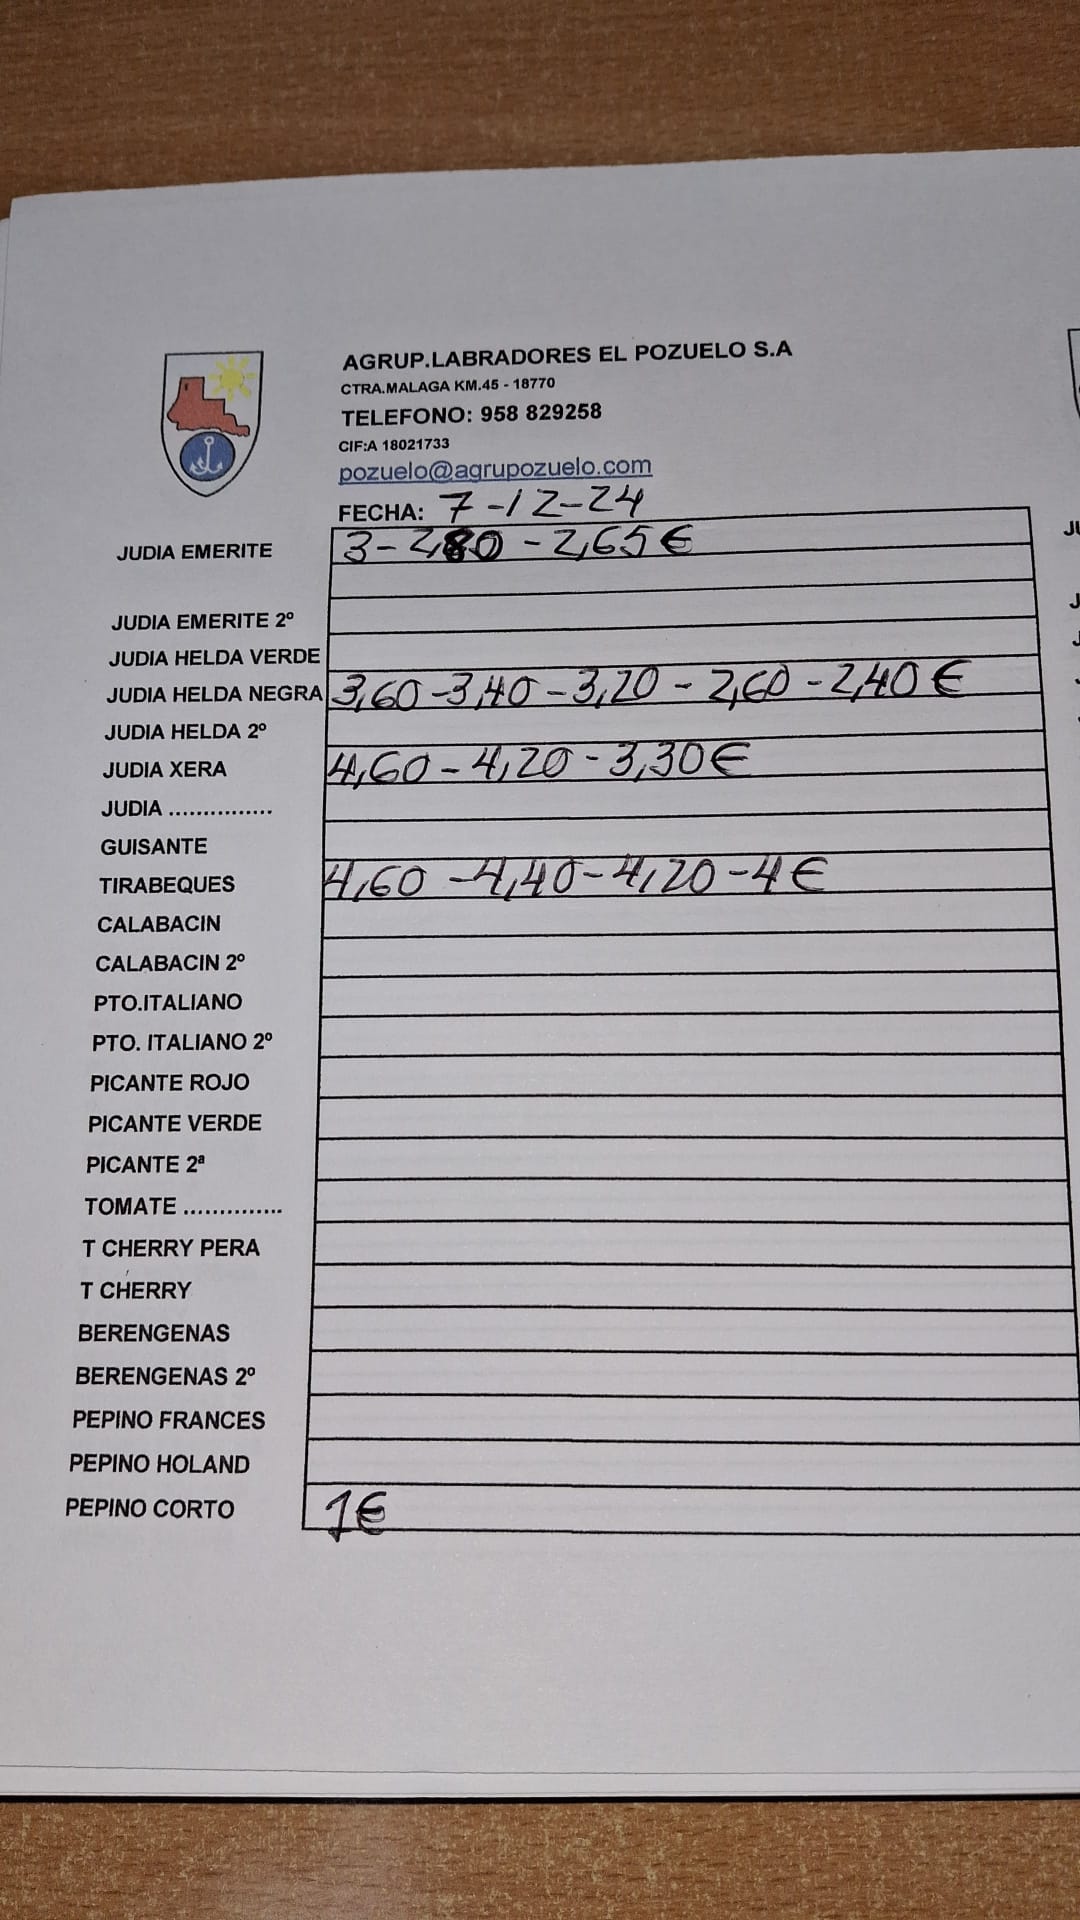 AGRUP.LABRADORES EL POZUELO S.A
CTRA.MALAGA KM.45 - 18770
TELEFONO: 958 829258
CIF:A 18021733
pozuelo@agrupozuelo.com
FECHA: 7-12-24
JUDIA EMERITE 3-2,80-2,65€
JUDIA EMERITE 2º
JUDIA HELDA VERDE
JUDIA HELDA NEGRA 3,60-3,40-3,20-2,60-2,40€
JUDIA HELDA 2º
JUDIA XERA 4,60-4,20-3,30€
JUDIA ...............
GUISANTE
TIRABEQUES 4,60-4,40-4,20-4€
CALABACIN
CALABACIN 2º
PTO.ITALIANO
PTO. ITALIANO 2º
PICANTE ROJO
PICANTE VERDE
PICANTE 2ª
TOMATE ..............
T CHERRY PERA
T CHERRY
BERENGENAS
BERENGENAS 2º
PEPINO FRANCES
PEPINO HOLAND
PEPINO CORTO 1€